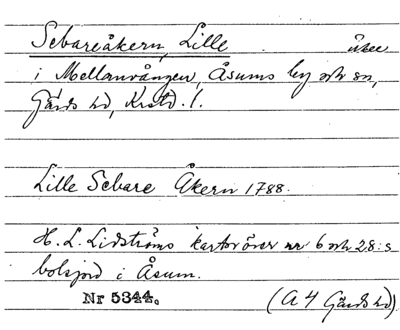 Sebareåkern, Lille åker
i Mellanvången, Åsums by och sn,
Gärds hd, Krstd. l.
Lille Sebare Åkern 1788.
H. L. Lidströms kartor över nr 6 och 28:s
bolsjord i Åsum.
Nr 5344.
(A 4 Gärds hd)